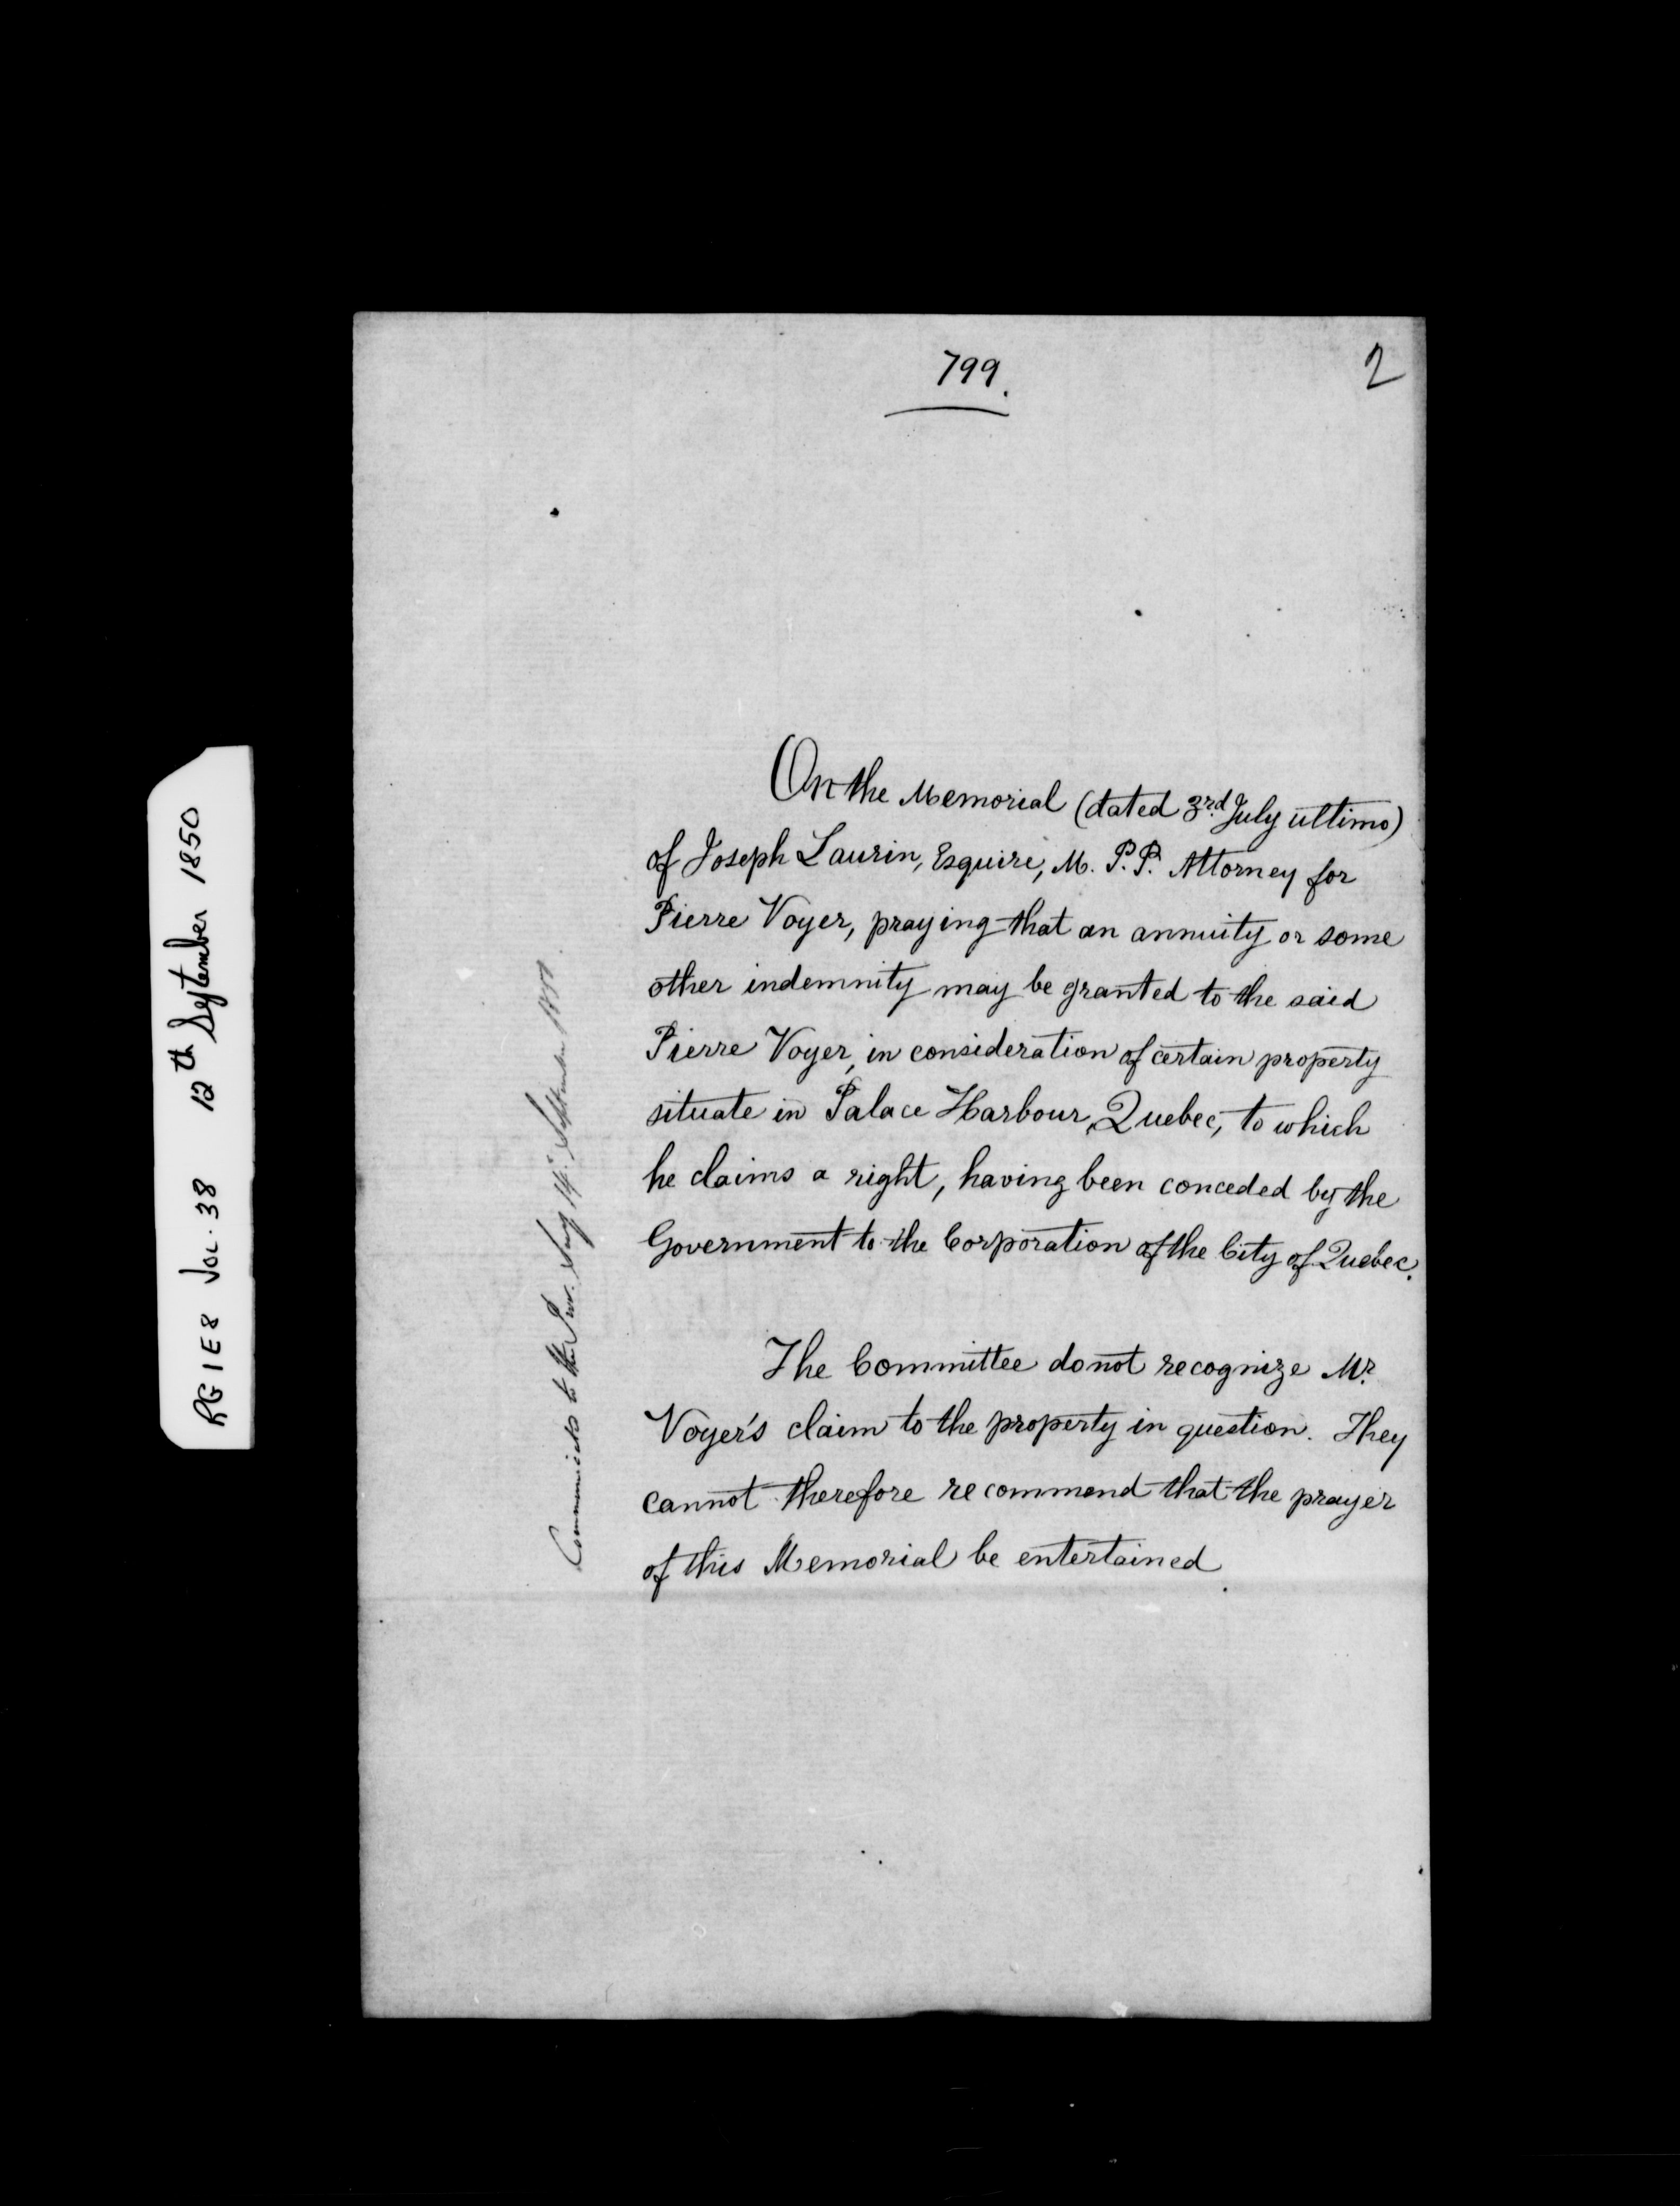 799.
2
On the Memorial (dated 3rd July ultimo)
of Joseph Laurin, Esquire, M. P. P. Attorney for
Pierre Voyer, praying that an annuity or some
other indemnity may be granted to the said
Pierre Voyer, in consideration of certain property
situate in Palace Harbour, Quebec, to which
he claims a right, having been conceded by the
Government to the Corporation of the City of Quebec.
The Committee do not recognize Mr.
Voyer's claim to the property in question. They
cannot therefore recommend that the prayer
of this Memorial be entertained.
to the Prov. Secy 14th September 1850.
RG 1 E 8 Vol. 38 12th September 1850